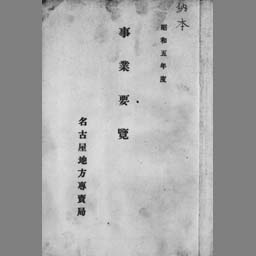 納本
昭和五年度
事業要覽
名古屋地方專賣局